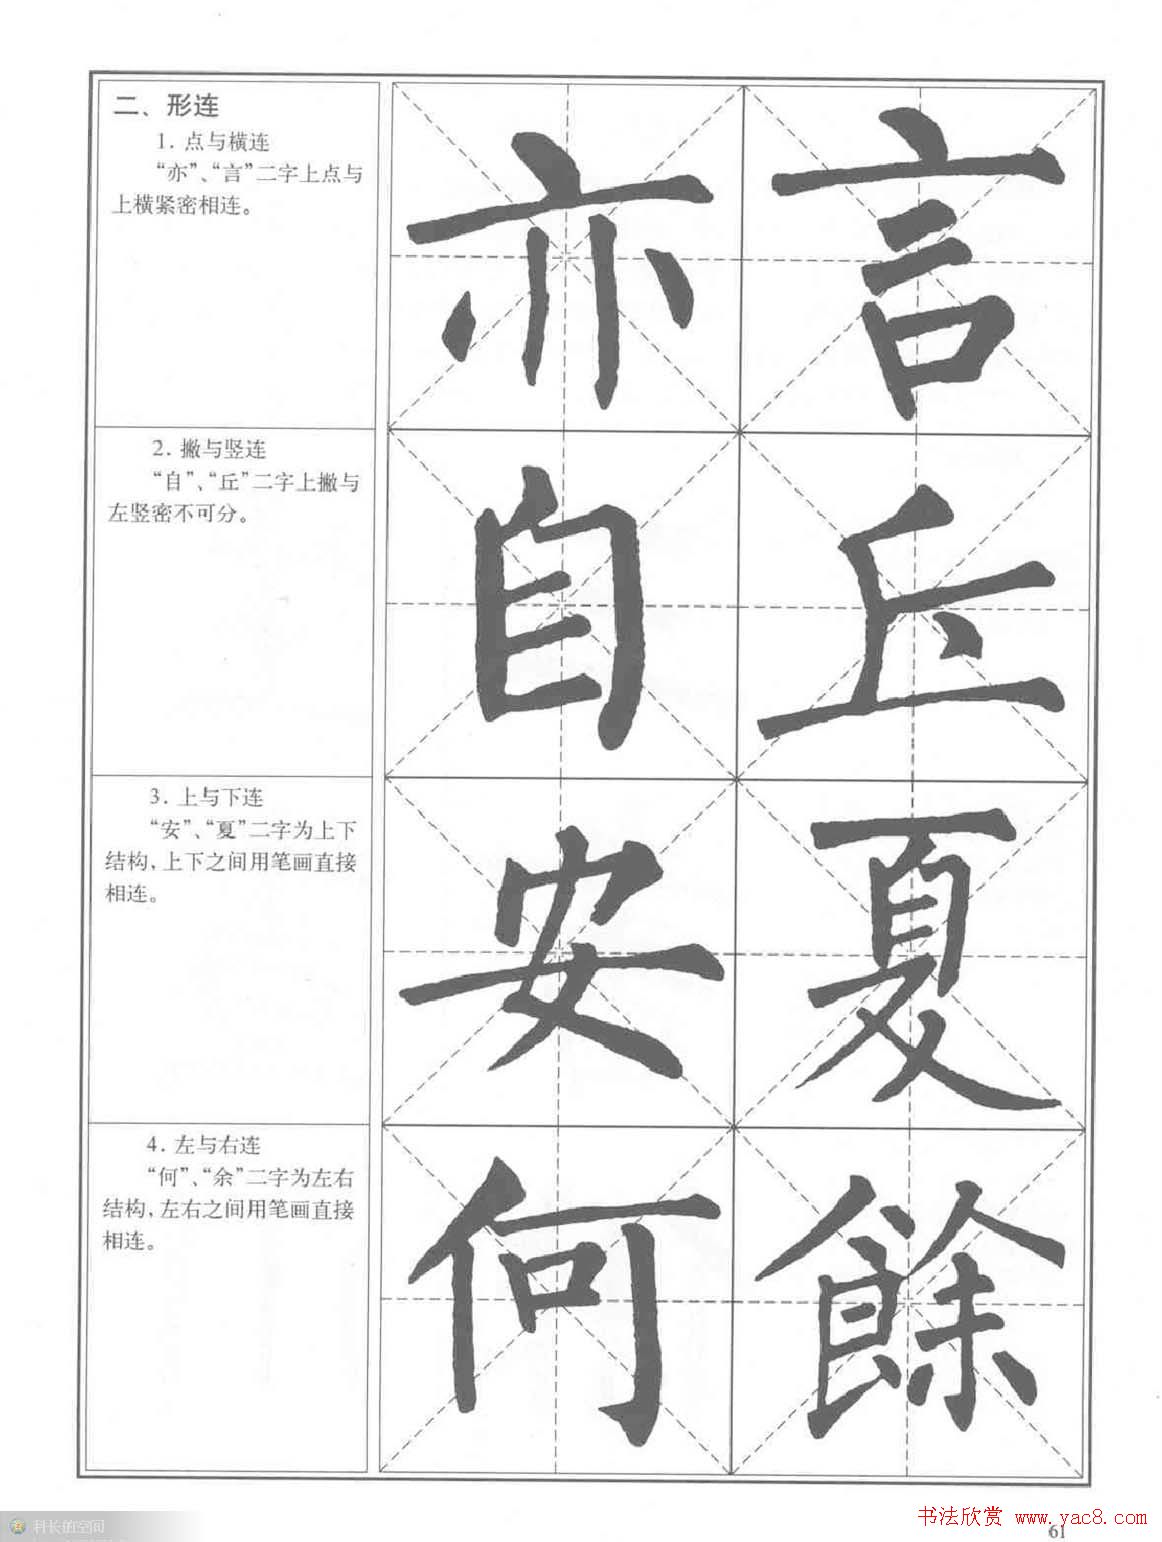 二、形连
1. 点与横连
“亦”、“言”二字上点与
上横紧密相连。
亦 言
2. 撇与竖连
“自”、“丘”二字上撇与
左竖密不可分。
自 丘
3. 上与下连
“安”、“夏”二字为上下
结构，上下之间用笔画直接
相连。
安 夏
4. 左与右连
“何”、“余”二字为左右
结构，左右之间用笔画直接
相连。
何 餘
科长的空间
书法欣赏 www.yac8.com
61